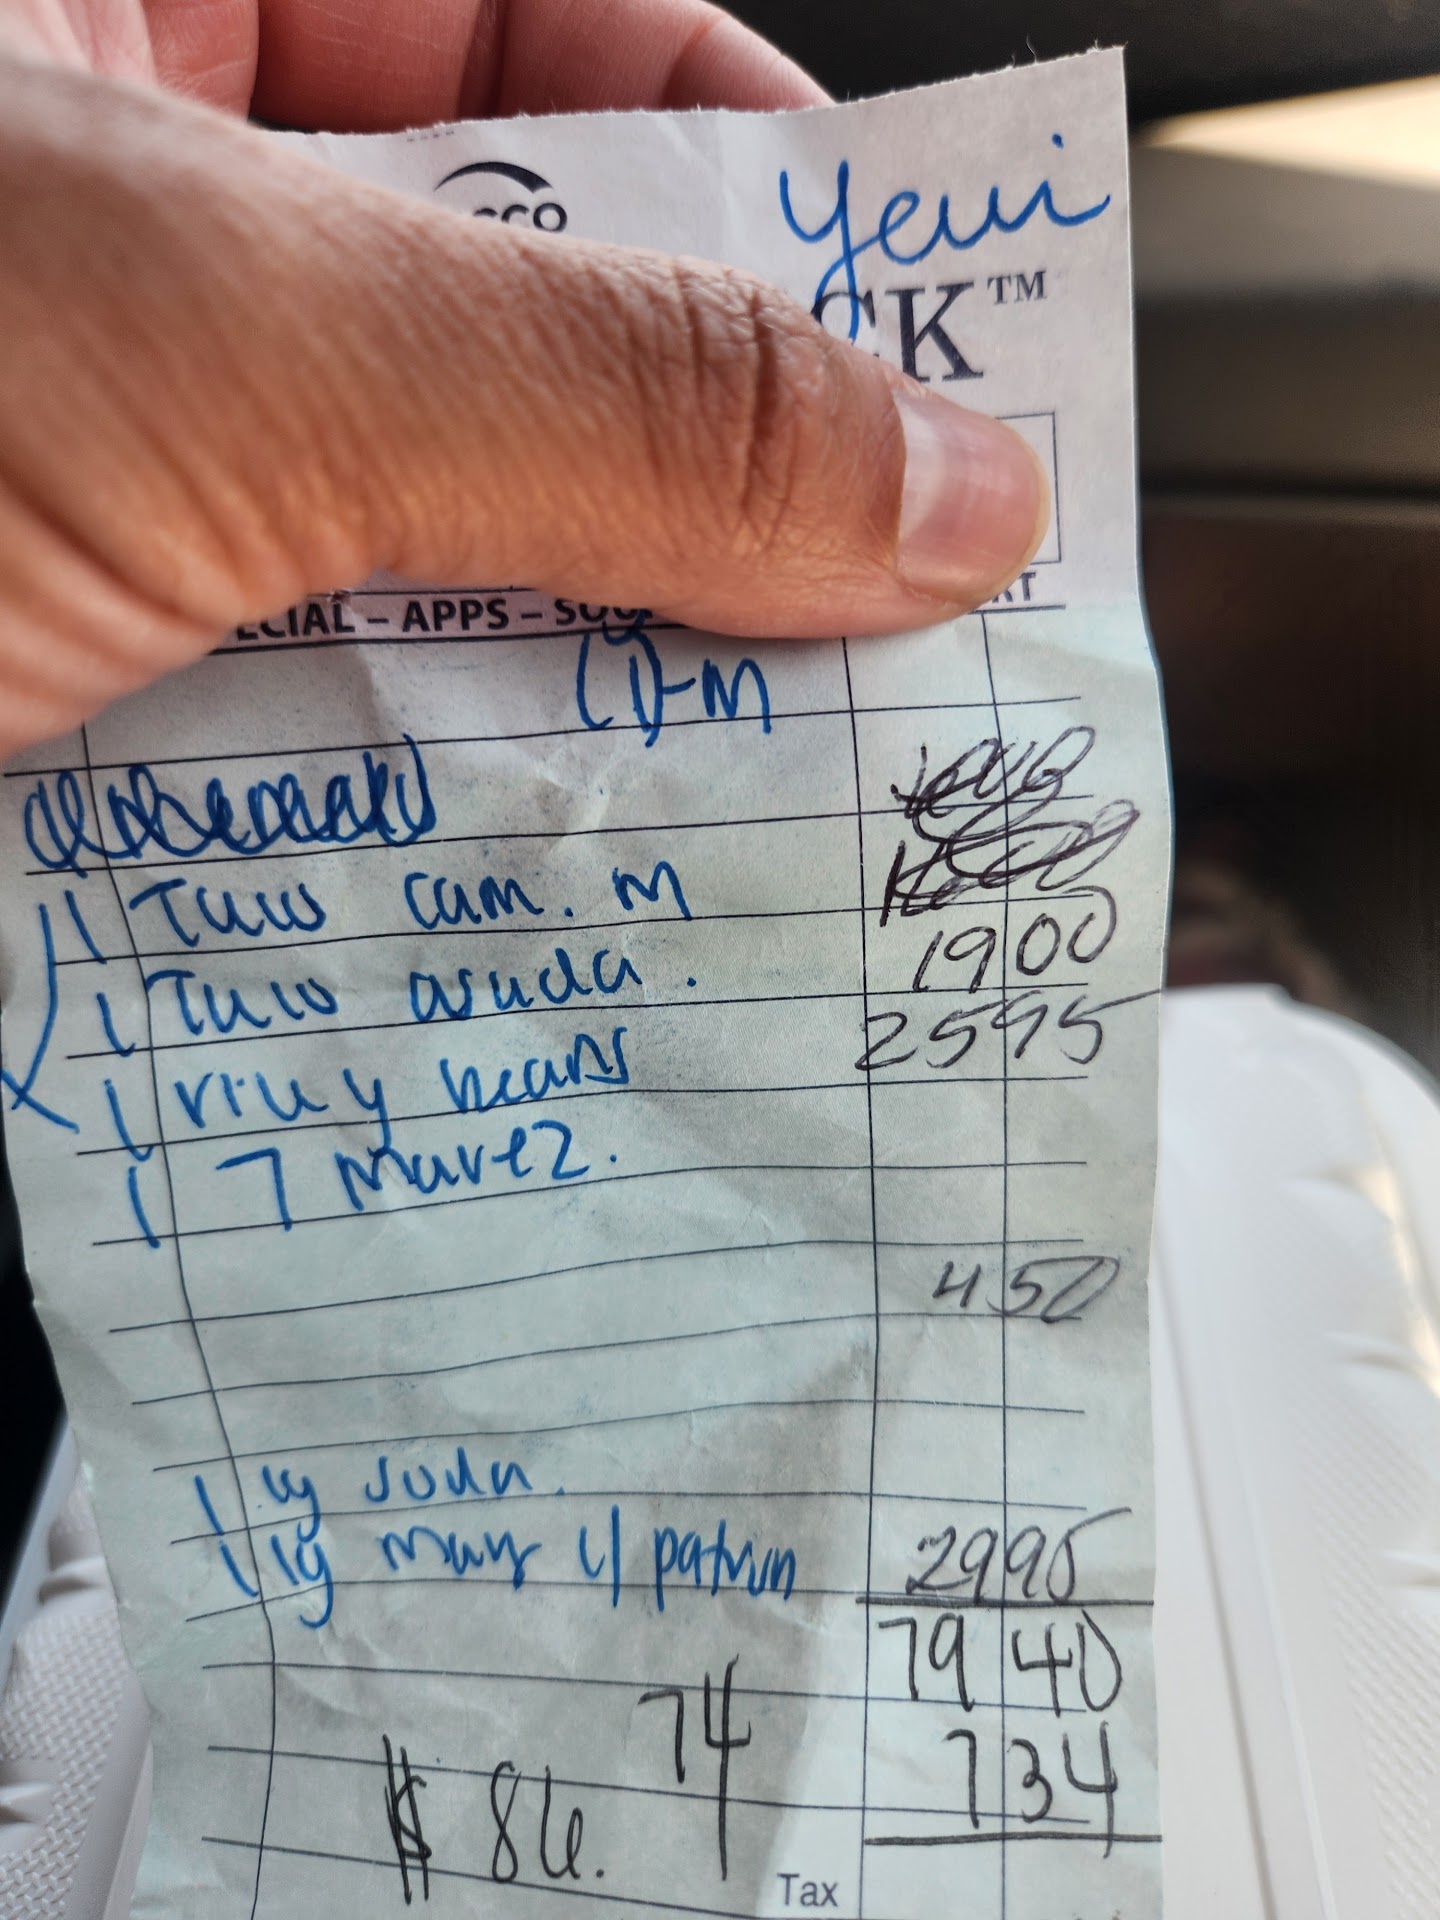 CCO
Yeui
CK™
RT
ECIAL – APPS – SOU
(1)-M
1 Taco cam. M
1 Taco asada. 1900
1 rice y beans 2595
1 7 Marez.
450
1 lg soda.
1 lg Marg c/ patron 2995
7940
74 734
$ 86.
Tax